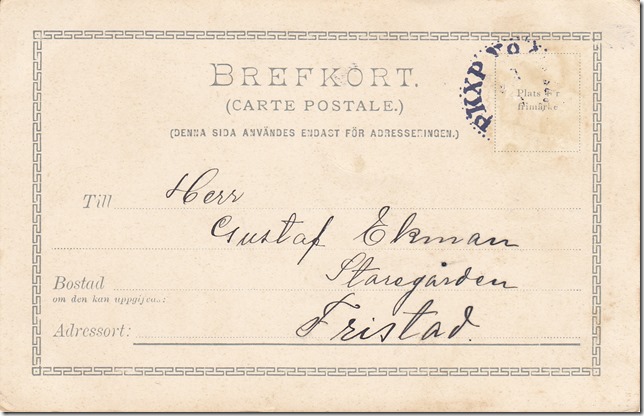 BREFKORT.
(CARTE POSTALE.)
(DENNA SIDA ANVÄNDES ENDAST FÖR ADRESSERINGEN.)
PKXP No
Plats för
frimärke
Till Herr
Gustaf Ekman
Bostad Staregården
om den kan uppgifvas:
Adressort: Fristad.